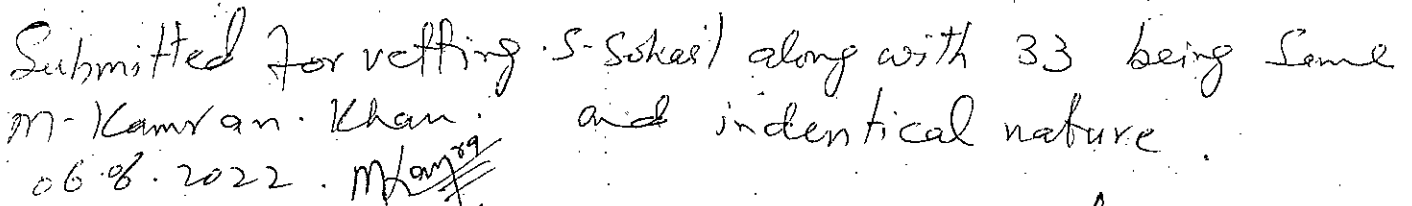 Submitted for vetting. S-Sohail along with 33 being Same
M-Kamran. Khan. and indentical nature.
06.08.2022. MKamra